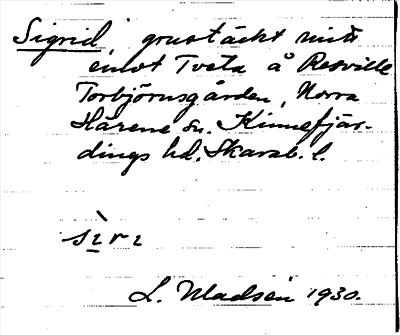 Sigrid, grustäckt mitt
emot Tveta å Resville
Torbjörnsgården, Norra
Härene sn. Kinnefjär-
dings hd. Skarab. l.
L. Madsen 1930.